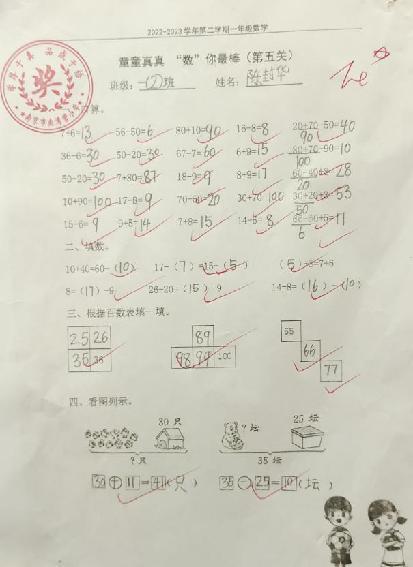 2022-2023学年第二学期一年级数学
童童真真 “数”你最棒（第五关）
班级：一(2)班 姓名：陈封华
奖
7+6=13 56-50=6 80+10=90 16-8=8 20+70-50=40
90
36-6=30 50-20=30 67-7=60 6+9=15 80+70-90=10
100
50-20=30 7+80=87 18-9=9 8+9=17 28
20
10+90=100 17-8=9 70-50=20 30+70=100 53
50
15-6=9 9+5=14 7+8=15 14-6=8 11
6
二、填数。
10+40=60-(10) 17-(7)=15-(5) (5)+8=7+6
8=(17)-9 (15) 9 14-8=(16)-(10)
三、根据百数表填一填。
25 26
35 36
89
98 99 100
55
66
77
四、看图列式。
30只 ?坛 25坛
?只 35坛
30+11=41(只) 35-25=10(坛)